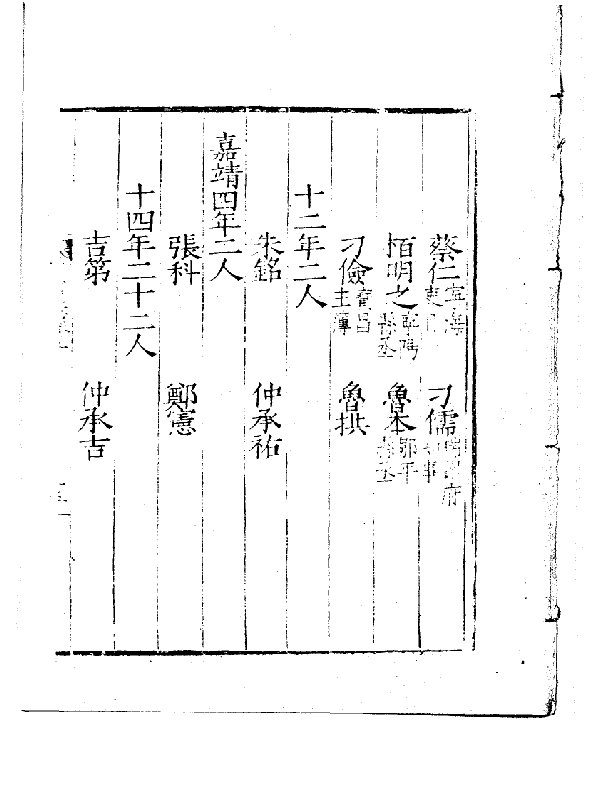 蔡仁 刁儒
栢明之 魯本
刁儉主簿 魯拱
十二年二人
朱銘 仲承祐
嘉靖四年二人
張科 鄭憲
十四年二十二人
吉第 仲承吉